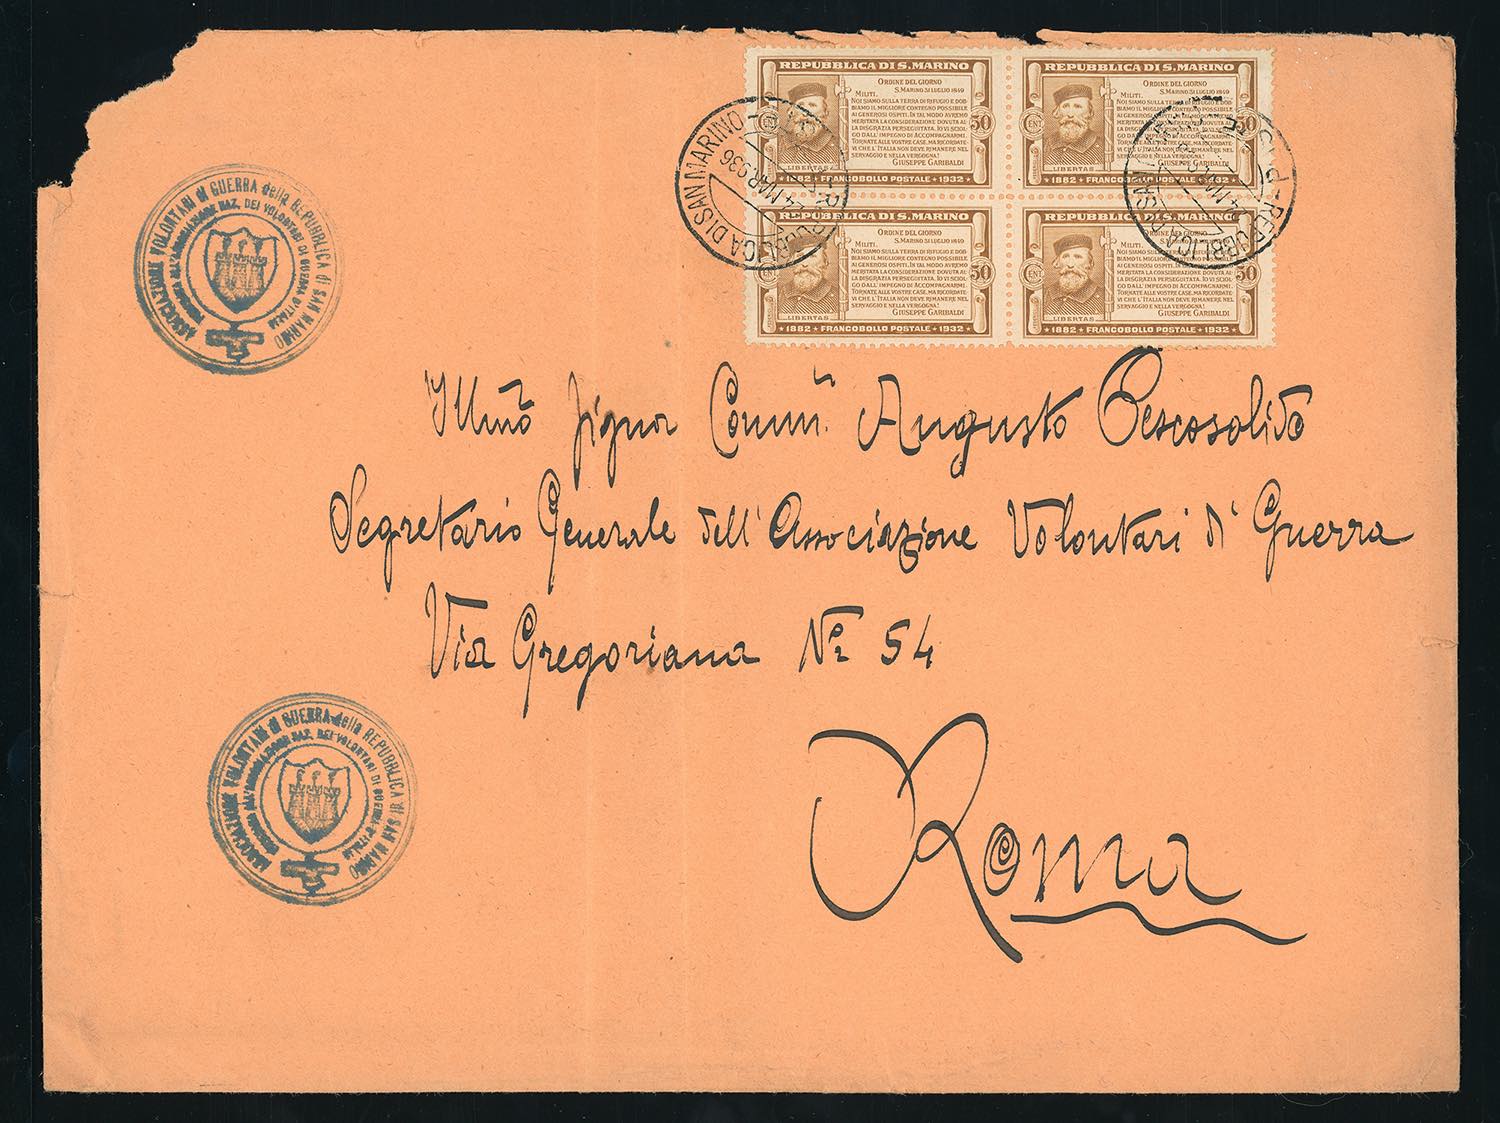 REPUBBLICA DI S. MARINO
ORDINE DEL GIORNO
S. MARINO 31 LUGLIO 1849
MILITI.
NOI SIAMO SULLA TERRA DI RIFUGIO E DOB-
BIAMO IL MIGLIORE CONTEGNO POSSIBILE
AI GENEROSI OSPITI. IN TAL MODO AVREMO
MERITATA LA CONSIDERAZIONE DOVUTA AL-
LA DISGRAZIA PERSEGUITATA. IO VI SCIOL-
GO DALL'IMPEGNO DI ACCOMPAGNARMI.
TORNATE ALLE VOSTRE CASE, MA RICORDATE-
VI CHE L'ITALIA NON DEVE RIMANERE NEL
SERVAGGIO E NELLA VERGOGNA!
GIUSEPPE GARIBALDI
CENT 50
LIBERTAS
★ 1882 ★ FRANCOBOLLO POSTALE ★ 1932 ★
REPUBBLICA DI S. MARINO
ORDINE DEL GIORNO
S. MARINO 31 LUGLIO 1849
MILITI.
NOI SIAMO SULLA TERRA DI RIFUGIO E DOB-
BIAMO IL MIGLIORE CONTEGNO POSSIBILE
AI GENEROSI OSPITI. IN TAL MODO AVREMO
MERITATA LA CONSIDERAZIONE DOVUTA AL-
LA DISGRAZIA PERSEGUITATA. IO VI SCIOL-
GO DALL'IMPEGNO DI ACCOMPAGNARMI.
TORNATE ALLE VOSTRE CASE, MA RICORDATE-
VI CHE L'ITALIA NON DEVE RIMANERE NEL
SERVAGGIO E NELLA VERGOGNA!
GIUSEPPE GARIBALDI
CENT 50
LIBERTAS
★ 1882 ★ FRANCOBOLLO POSTALE ★ 1932 ★
REPUBBLICA DI S. MARINO
ORDINE DEL GIORNO
S. MARINO 31 LUGLIO 1849
MILITI.
NOI SIAMO SULLA TERRA DI RIFUGIO E DOB-
BIAMO IL MIGLIORE CONTEGNO POSSIBILE
AI GENEROSI OSPITI. IN TAL MODO AVREMO
MERITATA LA CONSIDERAZIONE DOVUTA AL-
LA DISGRAZIA PERSEGUITATA. IO VI SCIOL-
GO DALL'IMPEGNO DI ACCOMPAGNARMI.
TORNATE ALLE VOSTRE CASE, MA RICORDATE-
VI CHE L'ITALIA NON DEVE RIMANERE NEL
SERVAGGIO E NELLA VERGOGNA!
GIUSEPPE GARIBALDI
CENT 50
LIBERTAS
★ 1882 ★ FRANCOBOLLO POSTALE ★ 1932 ★
REPUBBLICA DI S. MARINO
ORDINE DEL GIORNO
S. MARINO 31 LUGLIO 1849
MILITI.
NOI SIAMO SULLA TERRA DI RIFUGIO E DOB-
BIAMO IL MIGLIORE CONTEGNO POSSIBILE
AI GENEROSI OSPITI. IN TAL MODO AVREMO
MERITATA LA CONSIDERAZIONE DOVUTA AL-
LA DISGRAZIA PERSEGUITATA. IO VI SCIOL-
GO DALL'IMPEGNO DI ACCOMPAGNARMI.
TORNATE ALLE VOSTRE CASE, MA RICORDATE-
VI CHE L'ITALIA NON DEVE RIMANERE NEL
SERVAGGIO E NELLA VERGOGNA!
GIUSEPPE GARIBALDI
CENT 50
LIBERTAS
★ 1882 ★ FRANCOBOLLO POSTALE ★ 1932 ★
REPUBBLICA DI SAN MARINO
24 MAR. 936
REPUBBLICA DI SAN
24 MAR
ASSOCIAZIONE VOLONTARI di GUERRA della REPUBBLICA di SAN MARINO
ALL'ASSOCIAZIONE NAZ. DEI VOLONTARI DI GUERRA D'ITALIA
Illmo Signor Comm. Augusto Pescosolido
Segretario Generale dell'Associazione Volontari di Guerra
Via Gregoriana No 54
Roma
ASSOCIAZIONE VOLONTARI di GUERRA della REPUBBLICA di SAN MARINO
ALL'ASSOCIAZIONE NAZ. DEI VOLONTARI DI GUERRA D'ITALIA